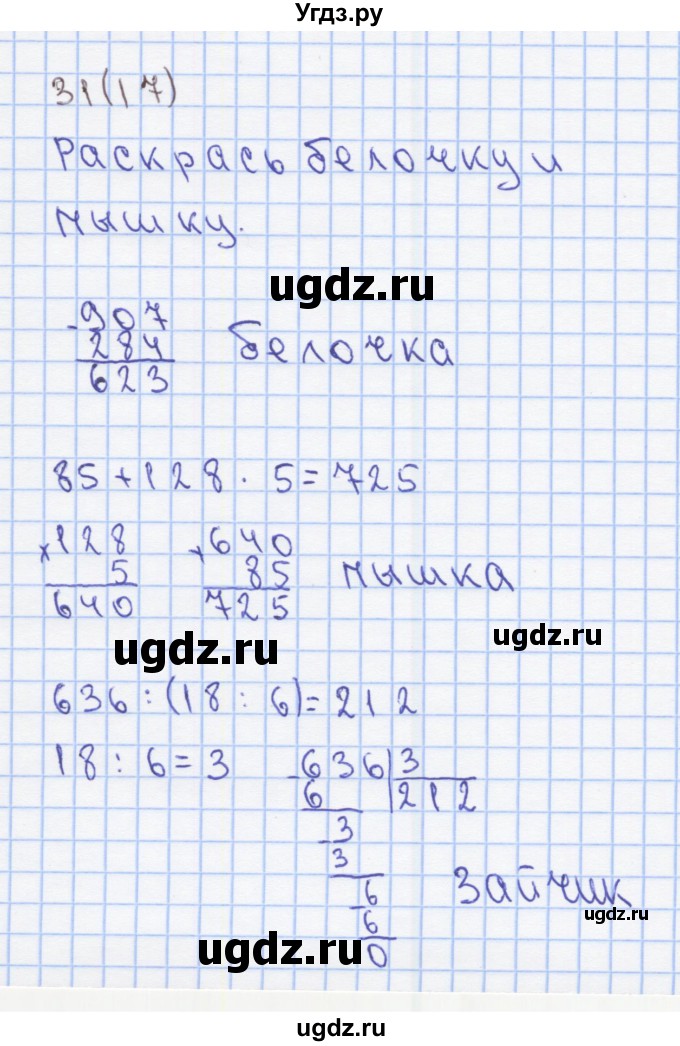 Угдз.ру
31(17)
Раскрась белочку и
мышку.
ugdz.ru
- 907
284
623
белочка
85 + 128 · 5 = 725
x 128
5
640
+ 640
85
725
мышка
ugdz.ru
ugdz.ru
636 : (18 : 6) = 212
18 : 6 = 3
- 636 | 3
6 212
- 3
3
- 6
6
0
Зайчик
ugdz.ru
ugdz.ru
ugdz.ru